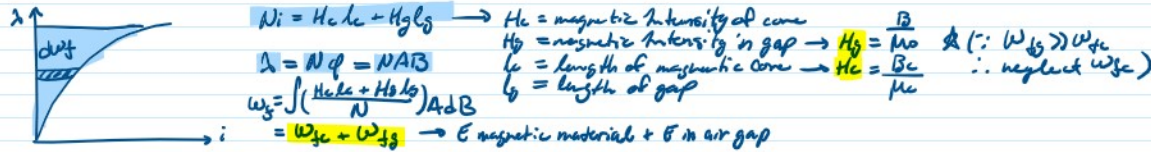 λ
dWf
i
Ni = Hclc + Hglg → Hc = magnetic intensity of core
Hg = magnetic intensity in gap → Hg = B/μ0 ☆ (∵ Wfg >> Wfc
λ = Nφ = NAB
lc = length of magnetic core → Hc = Bc/μc ∴ neglect Wfc)
lg = length of gap
Wf = ∫(Hclc + Hglg/N)AdB
= Wfc + Wfg → E magnetic material + E in air gap